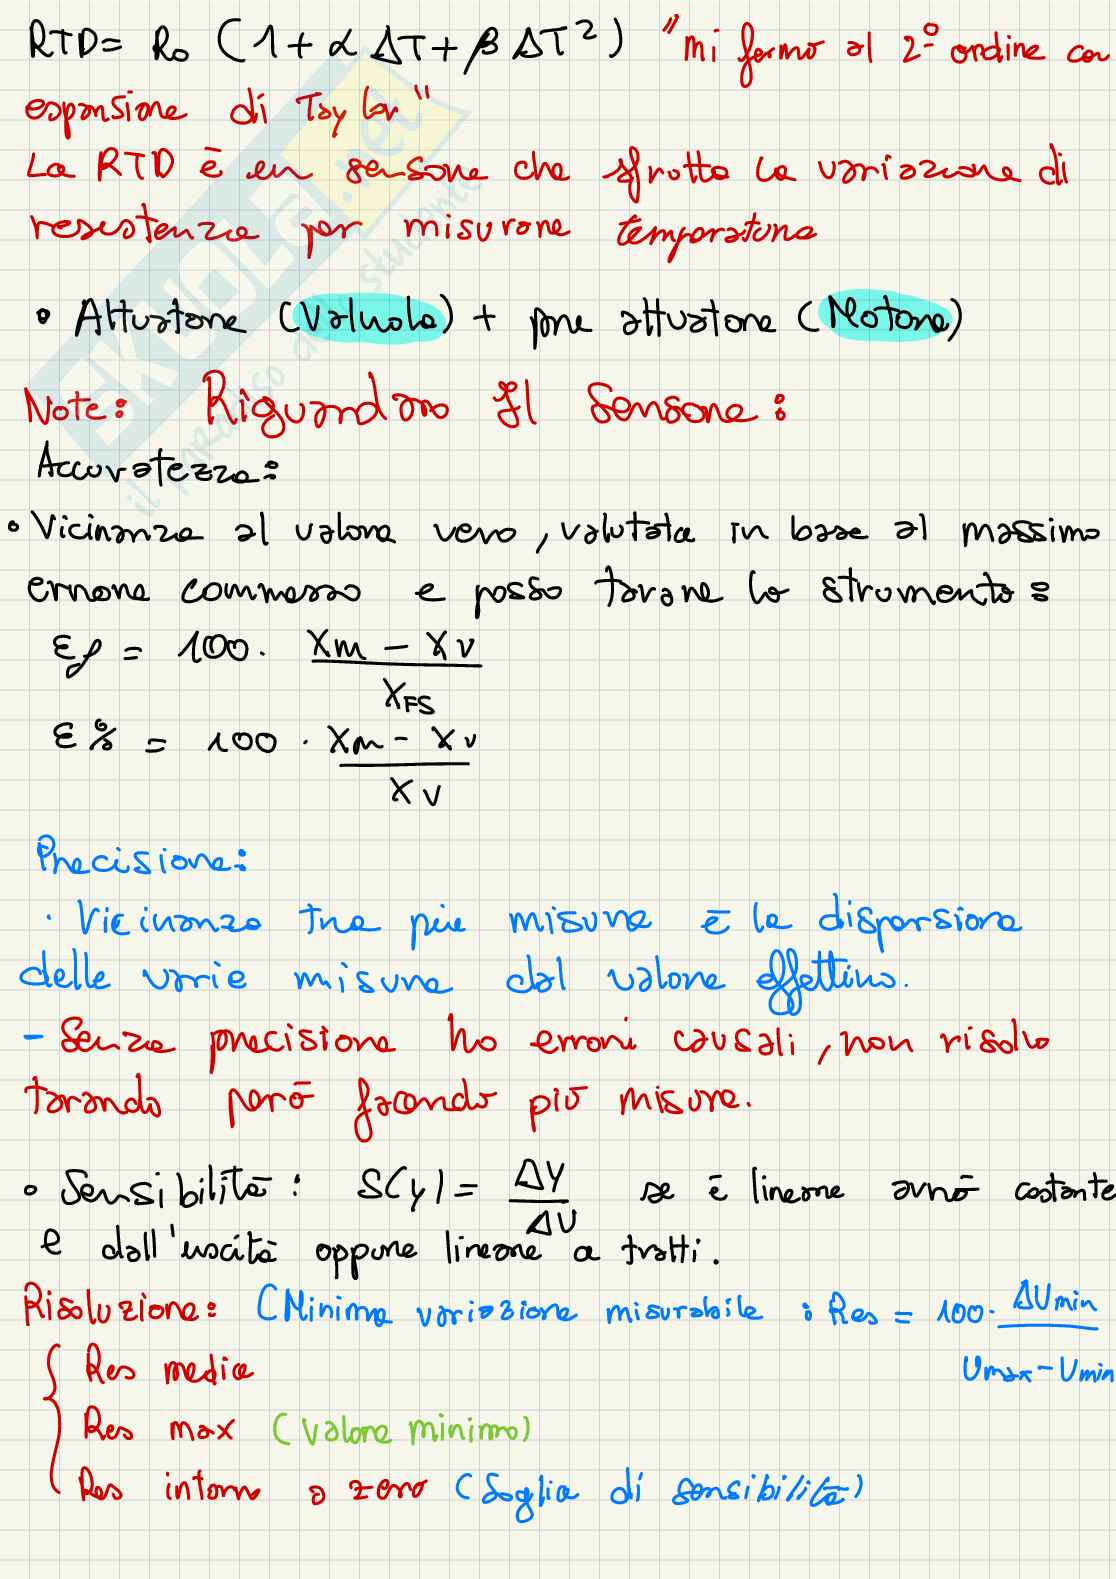 RTD= R₀ (1+ α ΔT + β ΔT²) "mi fermo al 2° ordine con
espansione di Taylor"
La RTD è un sensore che sfrutta la variazione di
resistenza per misurare temperatura
• Attuatore (Valvola) + pre attuatore (Motore)
Note: Riguardano Il Sensore:
Accuratezza:
• Vicinanza al valore vero, valutata in base al massimo
errore commesso e posso tarare lo strumento:
εf = 100 · (Xm - Xv) / X_FS
ε% = 100 · (Xm - Xv) / Xv
Precisione:
· Vicinanza tra più misure è la dispersione
delle varie misure dal valore effettivo.
- Senza precisione ho errori causali, non risolvo
tarando però facendo più misure.
• Sensibilità: S(y) = ΔY / ΔU se è lineare avrò costante
e dall'uscita oppure lineare a tratti.
Risoluzione: (Minima variazione misurabile : Res = 100 · ΔUmin / (Umax - Umin)
Res media
Res max (valore minimo)
Res intorno a zero (Soglia di sensibilità)
SKUOLA.net
il paradiso dello studente